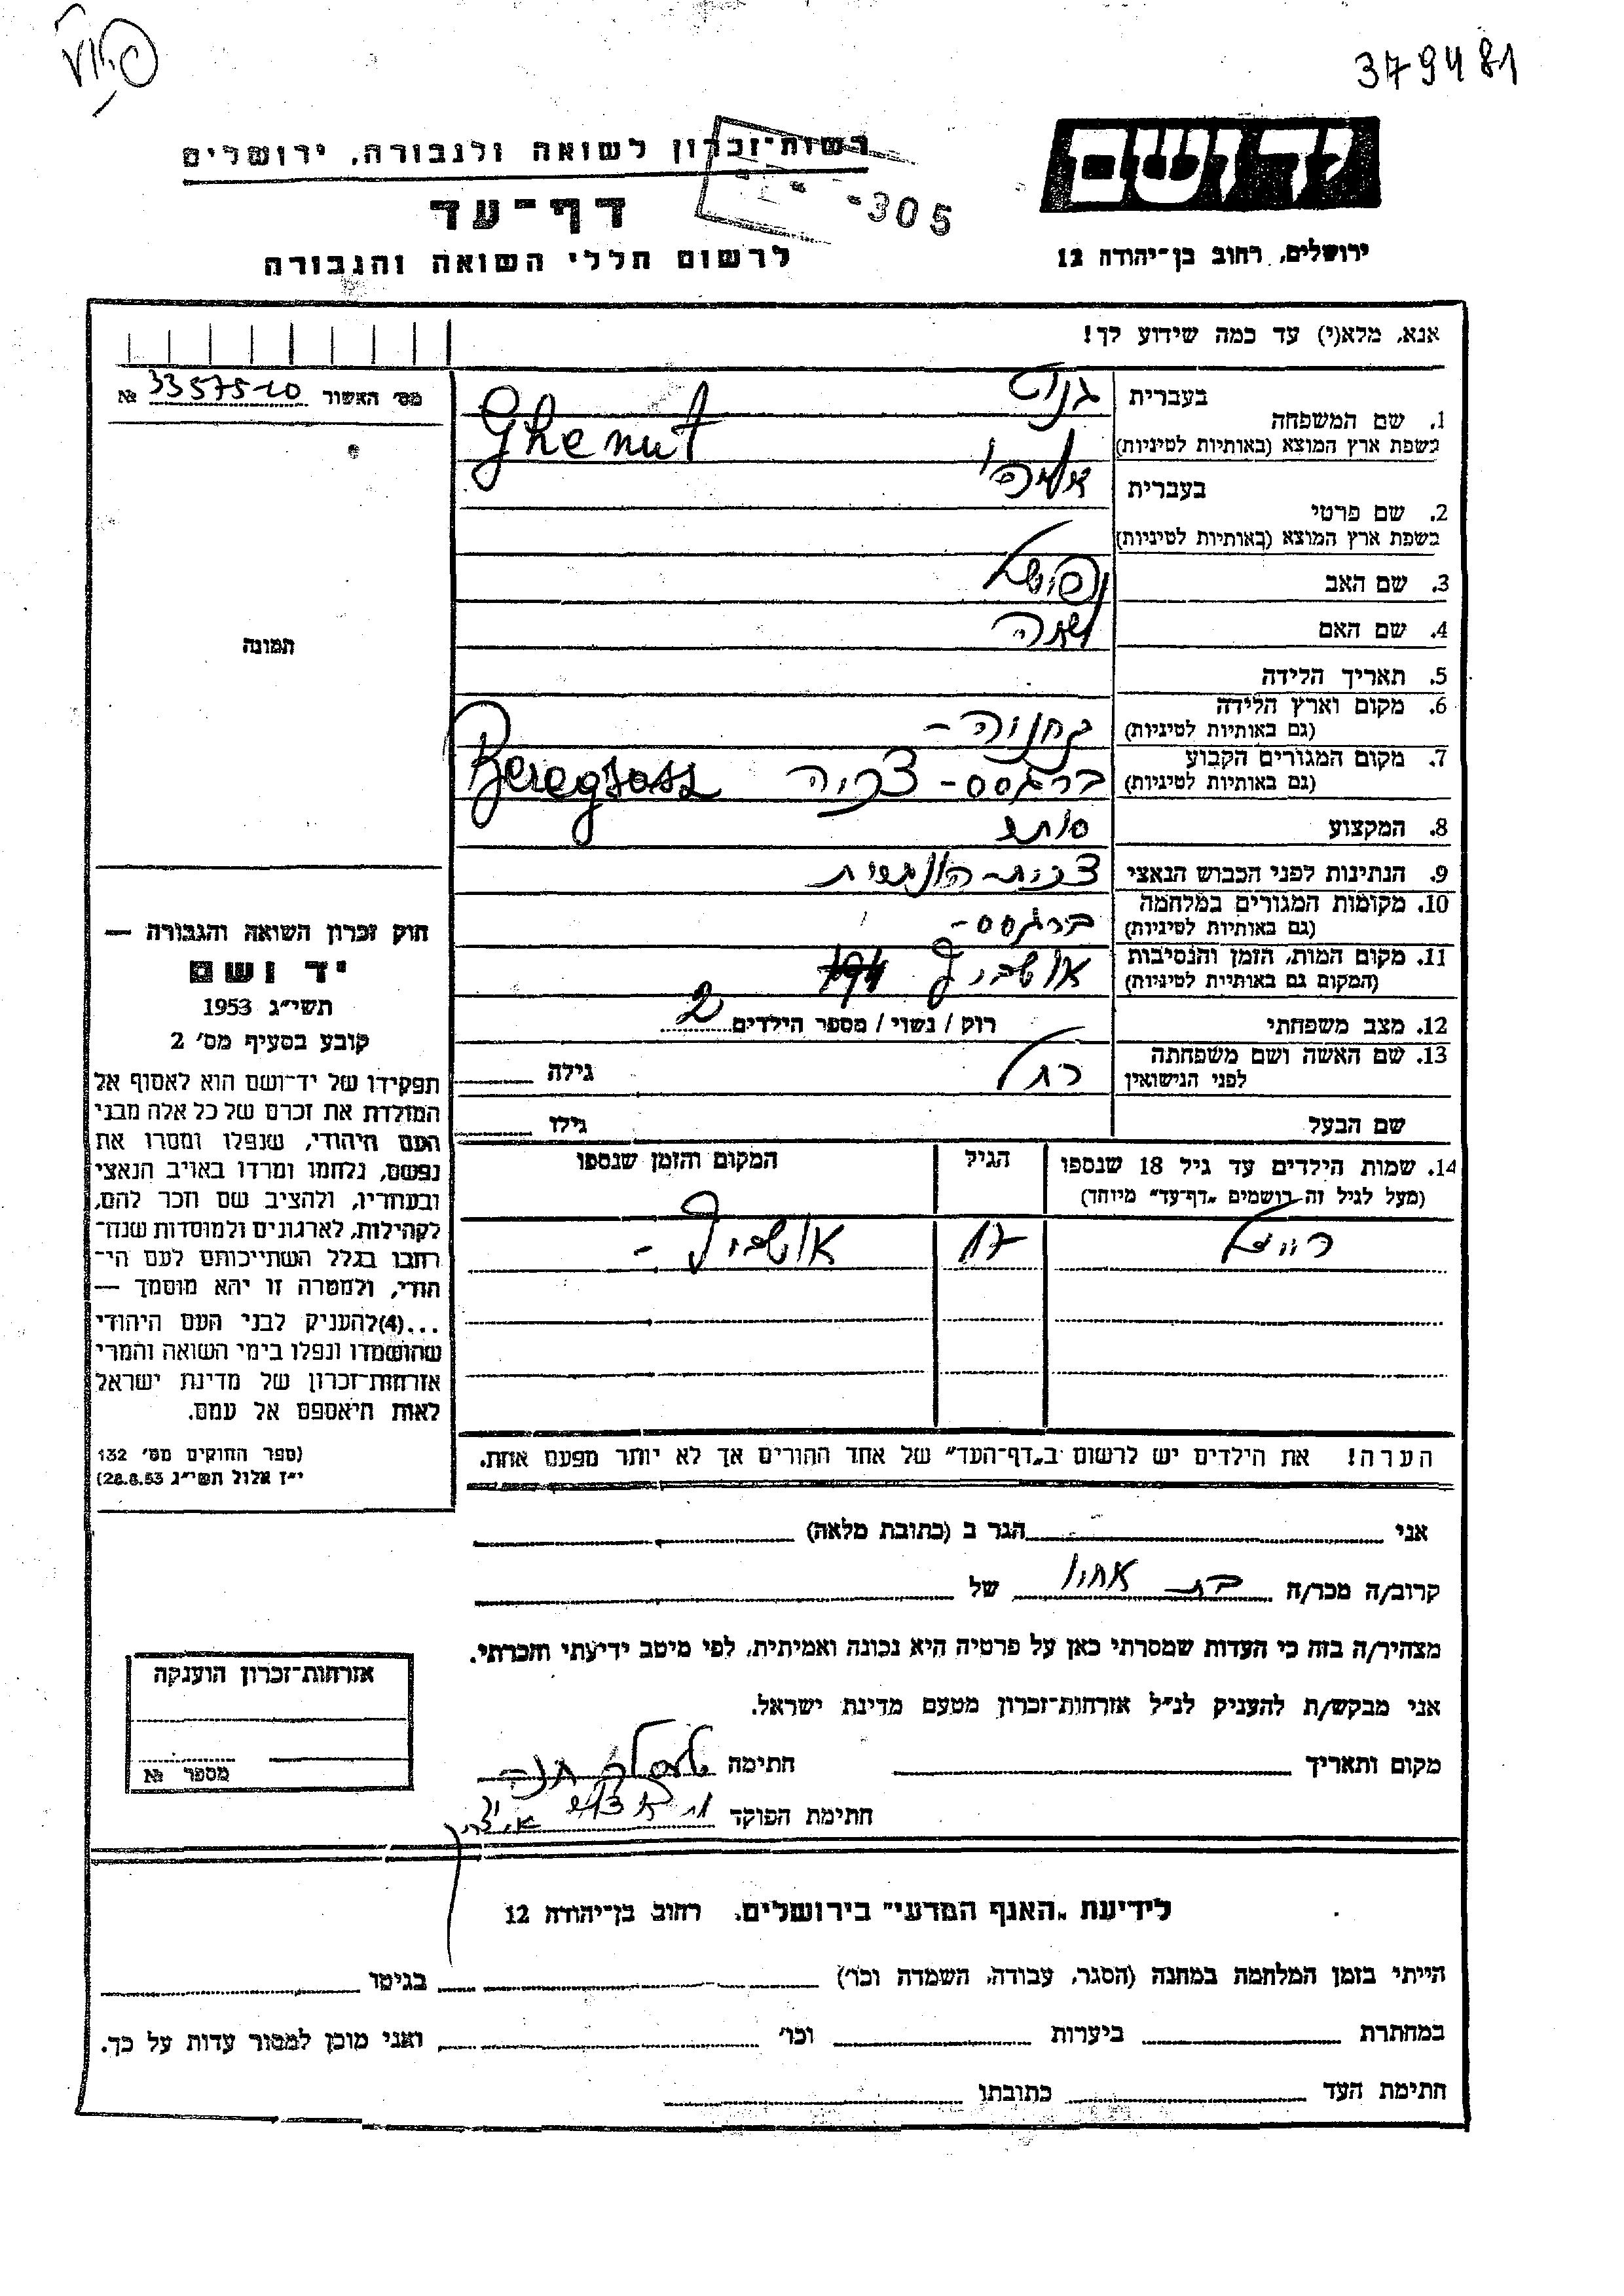 379481
רשות־זכרון לשואה ולגבורה, ירושלים
יד ושם
דף־עד
-305
לרשום חללי השואה והגבורה
ירושלים, רחוב בן־יהודה 12
אנא, מלא(י) עד כמה שידוע לך!
מס' האשור № 33575-20
1. שם המשפחה בעברית גנוט
בשפת ארץ המוצא (באותיות לטיניות) Ghenut
2. שם פרטי בעברית
בשפת ארץ המוצא (באותיות לטיניות)
3. שם האב
4. שם האם
5. תאריך הלידה
6. מקום וארץ הלידה
(גם באותיות לטיניות)
7. מקום המגורים הקבוע ברגסס - צכיה Beregsass
(גם באותיות לטיניות)
8. המקצוע סוחר
9. הנתינות לפני הכבוש הנאצי
10. מקומות המגורים במלחמה ברגסס-
(גם באותיות לטיניות)
11. מקום המות, הזמן והנסיבות אושביץ
(המקום גם באותיית לטיניות)
12. מצב משפחתי רוק / נשוי / מספר הילדים 2
13. שם האשה ושם משפחתה רחל גילה
לפני הנישואין
שם הבעל גילו
14. שמות הילדים עד גיל 18 שנספו הגיל המקום והזמן שנספו
(מעל לגיל זה רושמים „דף־עד" מיוחד)
17 אושביץ -
הערה! את הילדים יש לרשום ב„דף־העד" של אחד ההורים אך לא יותר מפעם אחת.
תמונה
חוק זכרון השואה והגבורה —
יד ושם
תשי"ג 1953
קובע בסעיף מס' 2
תפקידו של יד־ושם הוא לאסוף אל
המולדת את זכרם של כל אלה מבני
העם היהודי, שנפלו ומסרו את
נפשם, נלחמו ומרדו באויב הנאצי
ובעוזריו, ולהציב שם וזכר להם,
לקהילות, לארגונים ולמוסדות שנח־
רחבו בגלל השתייכותם לעם הי־
הודי, ולמטרה זו יהא מוסמך —
...(4)להעניק לבני העם היהודי
שהושמדו ונפלו בימי השואה והמרי
אזרחות־זכרון של מדינת ישראל
לאות היאספם אל עמם.
(ספר החוקים מס' 132
י"ז אלול תשי"ג 28.8.53)
אני הגר ב (כתובת מלאה)
קרוב/ה מכר/ה בת אחיו של
מצהיר/ה בזה כי העדות שמסרתי כאן על פרטיה היא נכונה ואמיתית, לפי מיטב ידיעתי והכרתי.
אני מבקש/ת להעניק לנ"ל אזרחות־זכרון מטעם מדינת ישראל.
מקום ותאריך חתימה
חתימת הפוקד
אזרחות־זכרון הוענקה
מספר №
לידיעת „האגף המדעי" בירושלים, רחוב בן־יהודה 12
הייתי בזמן המלחמה במחנה (הסגר, עבודה, השמדה וכו') בגיטו
במחתרת ביערות וכו' ואני מוכן למסור עדות על כך.
חתימת העד כתובתו